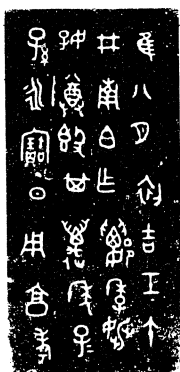 隹八月初吉壬午
井南白乍季姚
好尊𣪘其萬年子
孫永寶日用享考